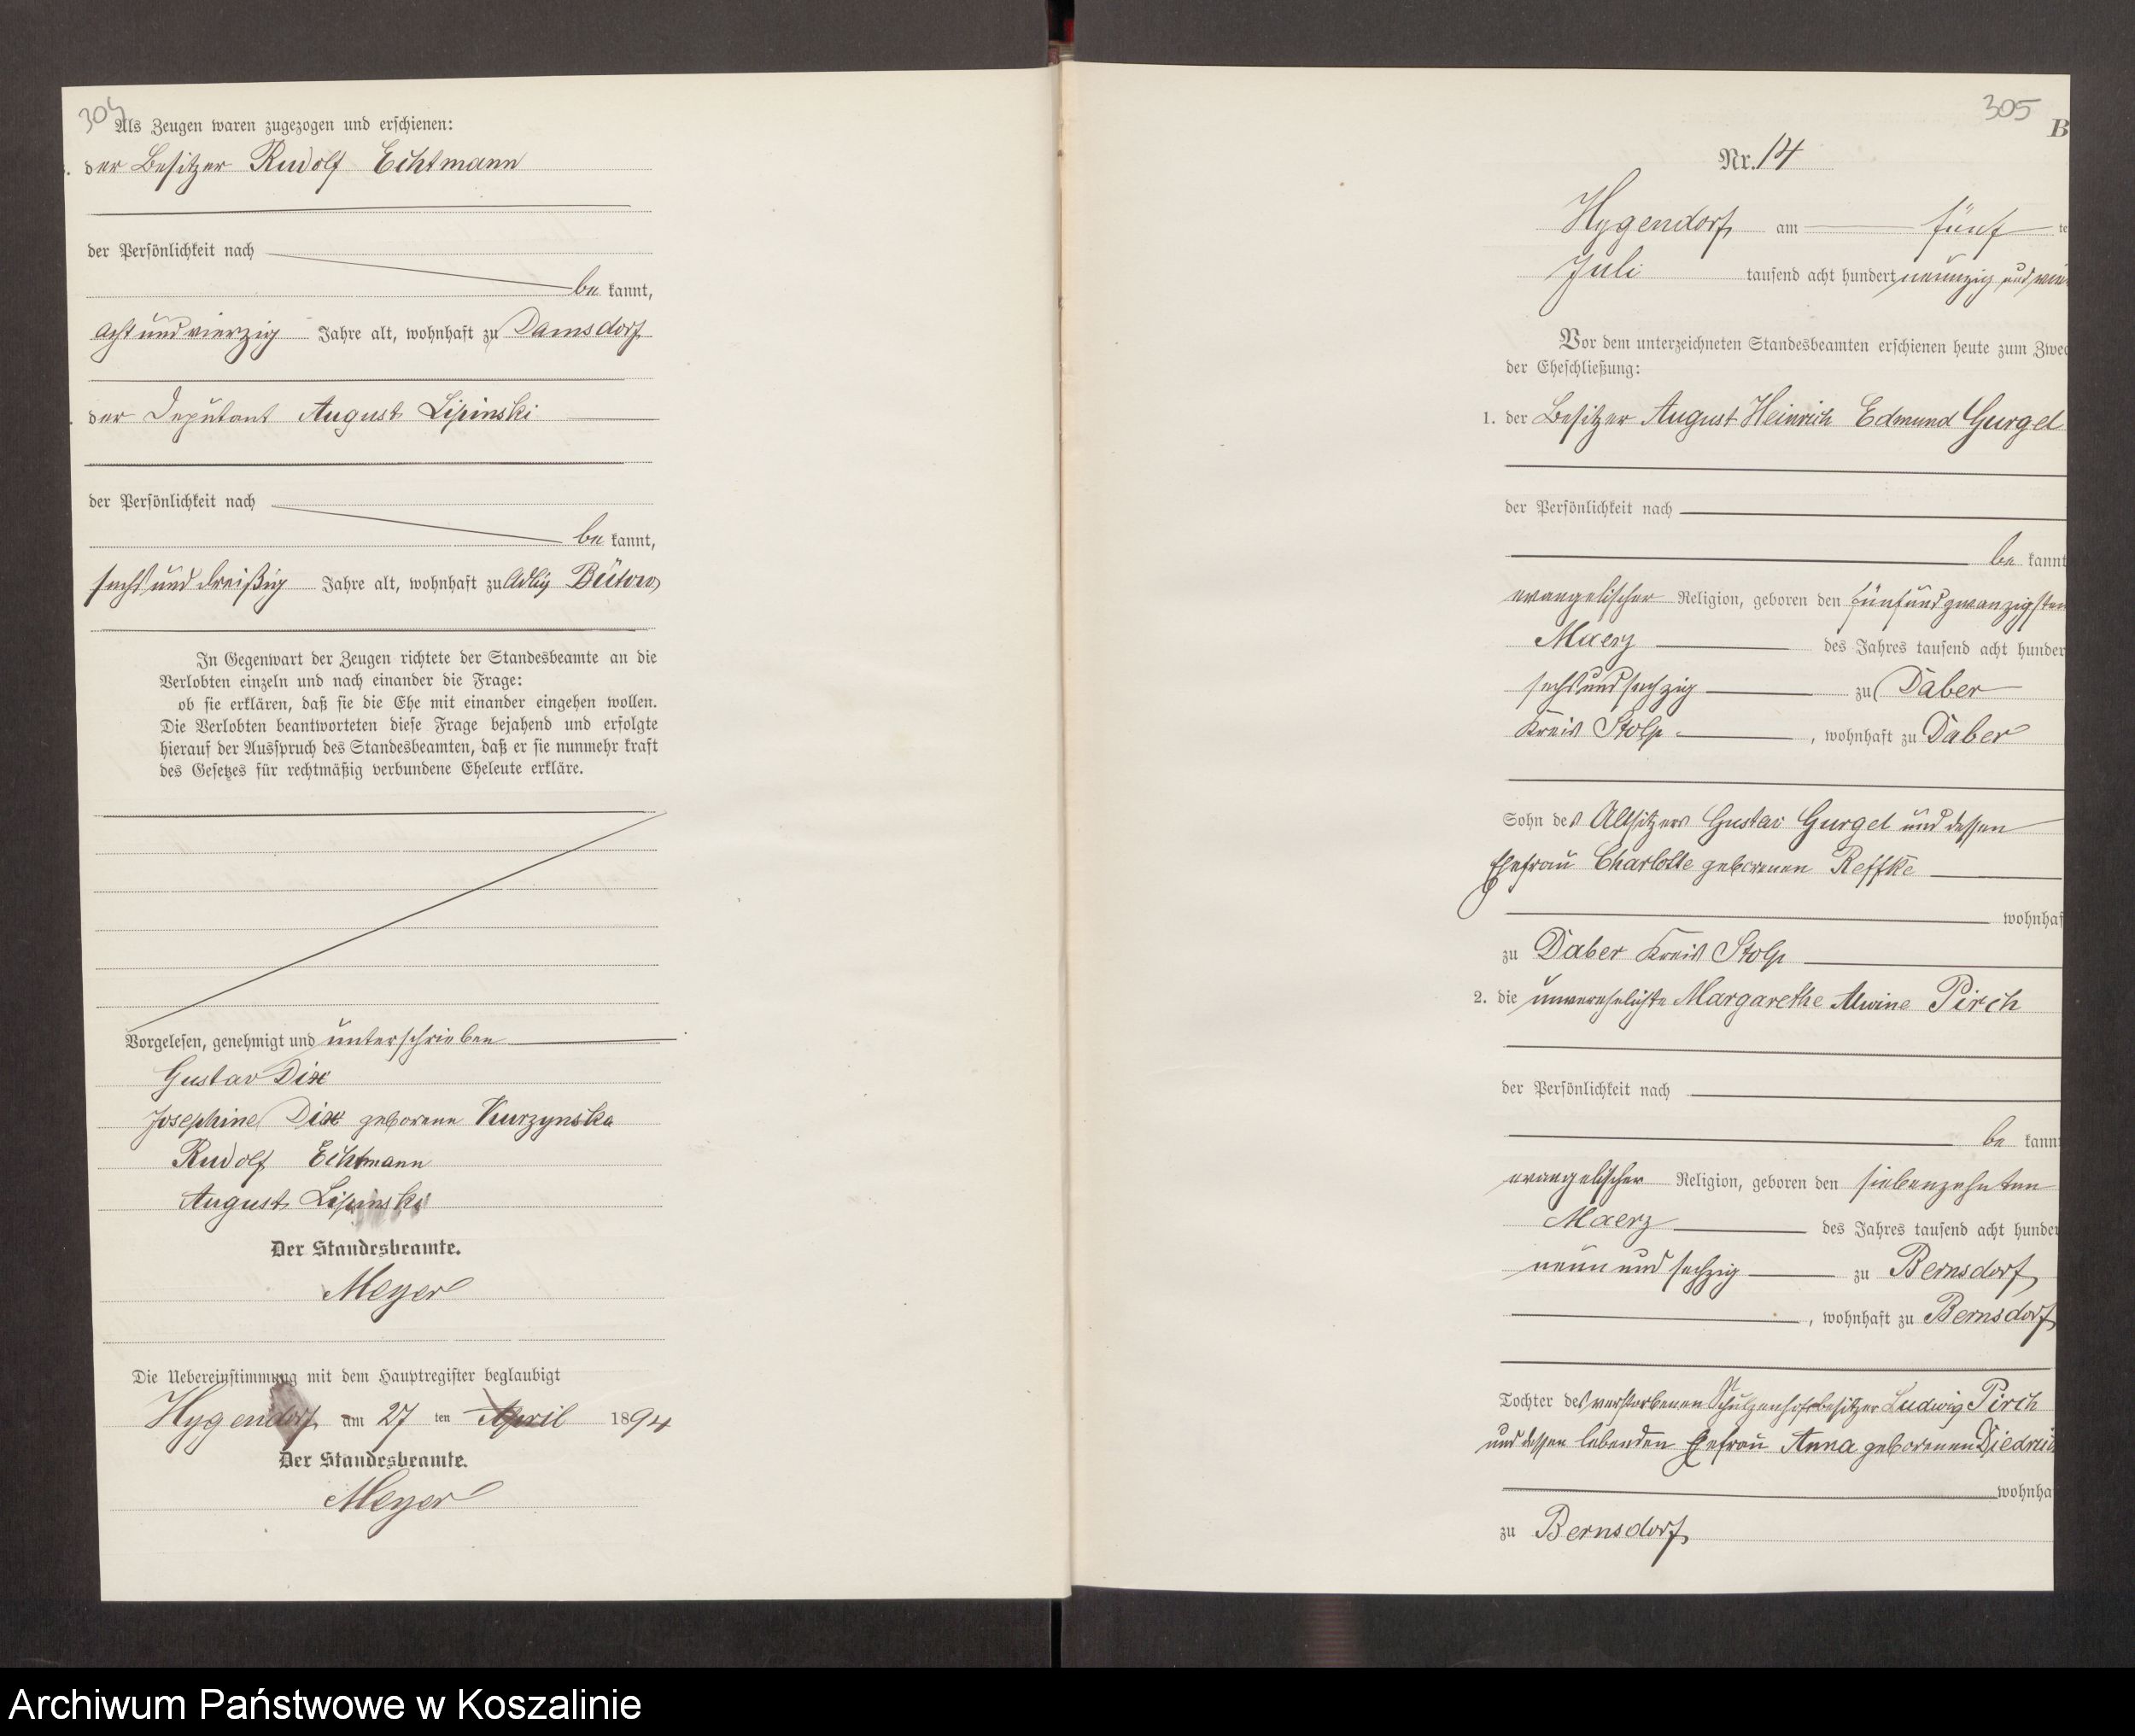 304
Als Zeugen waren zugezogen und erschienen:
der Besitzer Rudolf Echtmann
der Persönlichkeit nach
be kannt,
acht und vierzig Jahre alt, wohnhaft zu Damsdorf
der Deputant August Lipinski
der Persönlichkeit nach
be kannt,
sechs und dreißig Jahre alt, wohnhaft zu Adlig Bütow
In Gegenwart der Zeugen richtete der Standesbeamte an die
Verlobten einzeln und nach einander die Frage:
ob sie erklären, daß sie die Ehe mit einander eingehen wollen.
Die Verlobten beantworteten diese Frage bejahend und erfolgte
hierauf der Ausspruch des Standesbeamten, daß er sie nunmehr kraft
des Gesetzes für rechtmäßig verbundene Eheleute erkläre.
Vorgelesen, genehmigt und unterschrieben
Gustav Dix
Josephine Dix geborene Kurzynska
Rudolf Echtmann
August Lipinski
Der Standesbeamte.
Meyer
Die Uebereinstimmung mit dem Hauptregister beglaubigt
Hygendorf am 27 ten April 1894
Der Standesbeamte.
Meyer
305
B
Nr. 14
Hygendorf am fünf te
Juli tausend acht hundert neunzig und vier
Vor dem unterzeichneten Standesbeamten erschienen heute zum Zwec
der Eheschließung:
1. der Besitzer August Heinrich Edmund Gurgel
der Persönlichkeit nach
be kannt
evangelischer Religion, geboren den fünfundzwanzigsten
Maerz des Jahres tausend acht hunder
sechs und sechzig zu Daber
Kreis Stolp, wohnhaft zu Daber
Sohn des Altsitzers Gustav Gurgel und dessen
Ehefrau Charlotte geborenen Reffke
wohnhaf
zu Daber Kreis Stolp
2. die unverehelichte Margarethe Alwine Pirch
der Persönlichkeit nach
be kannt
evangelischer Religion, geboren den siebenzehnten
Maerz des Jahres tausend acht hunder
neun und sechzig zu Bernsdorf
, wohnhaft zu Bernsdorf
Tochter des verstorbenen Schulzenhofbesitzer Ludwig Pirch
und dessen lebenden Ehefrau Anna geborenen Diedrich
wohnha
zu Bernsdorf
Archiwum Państwowe w Koszalinie